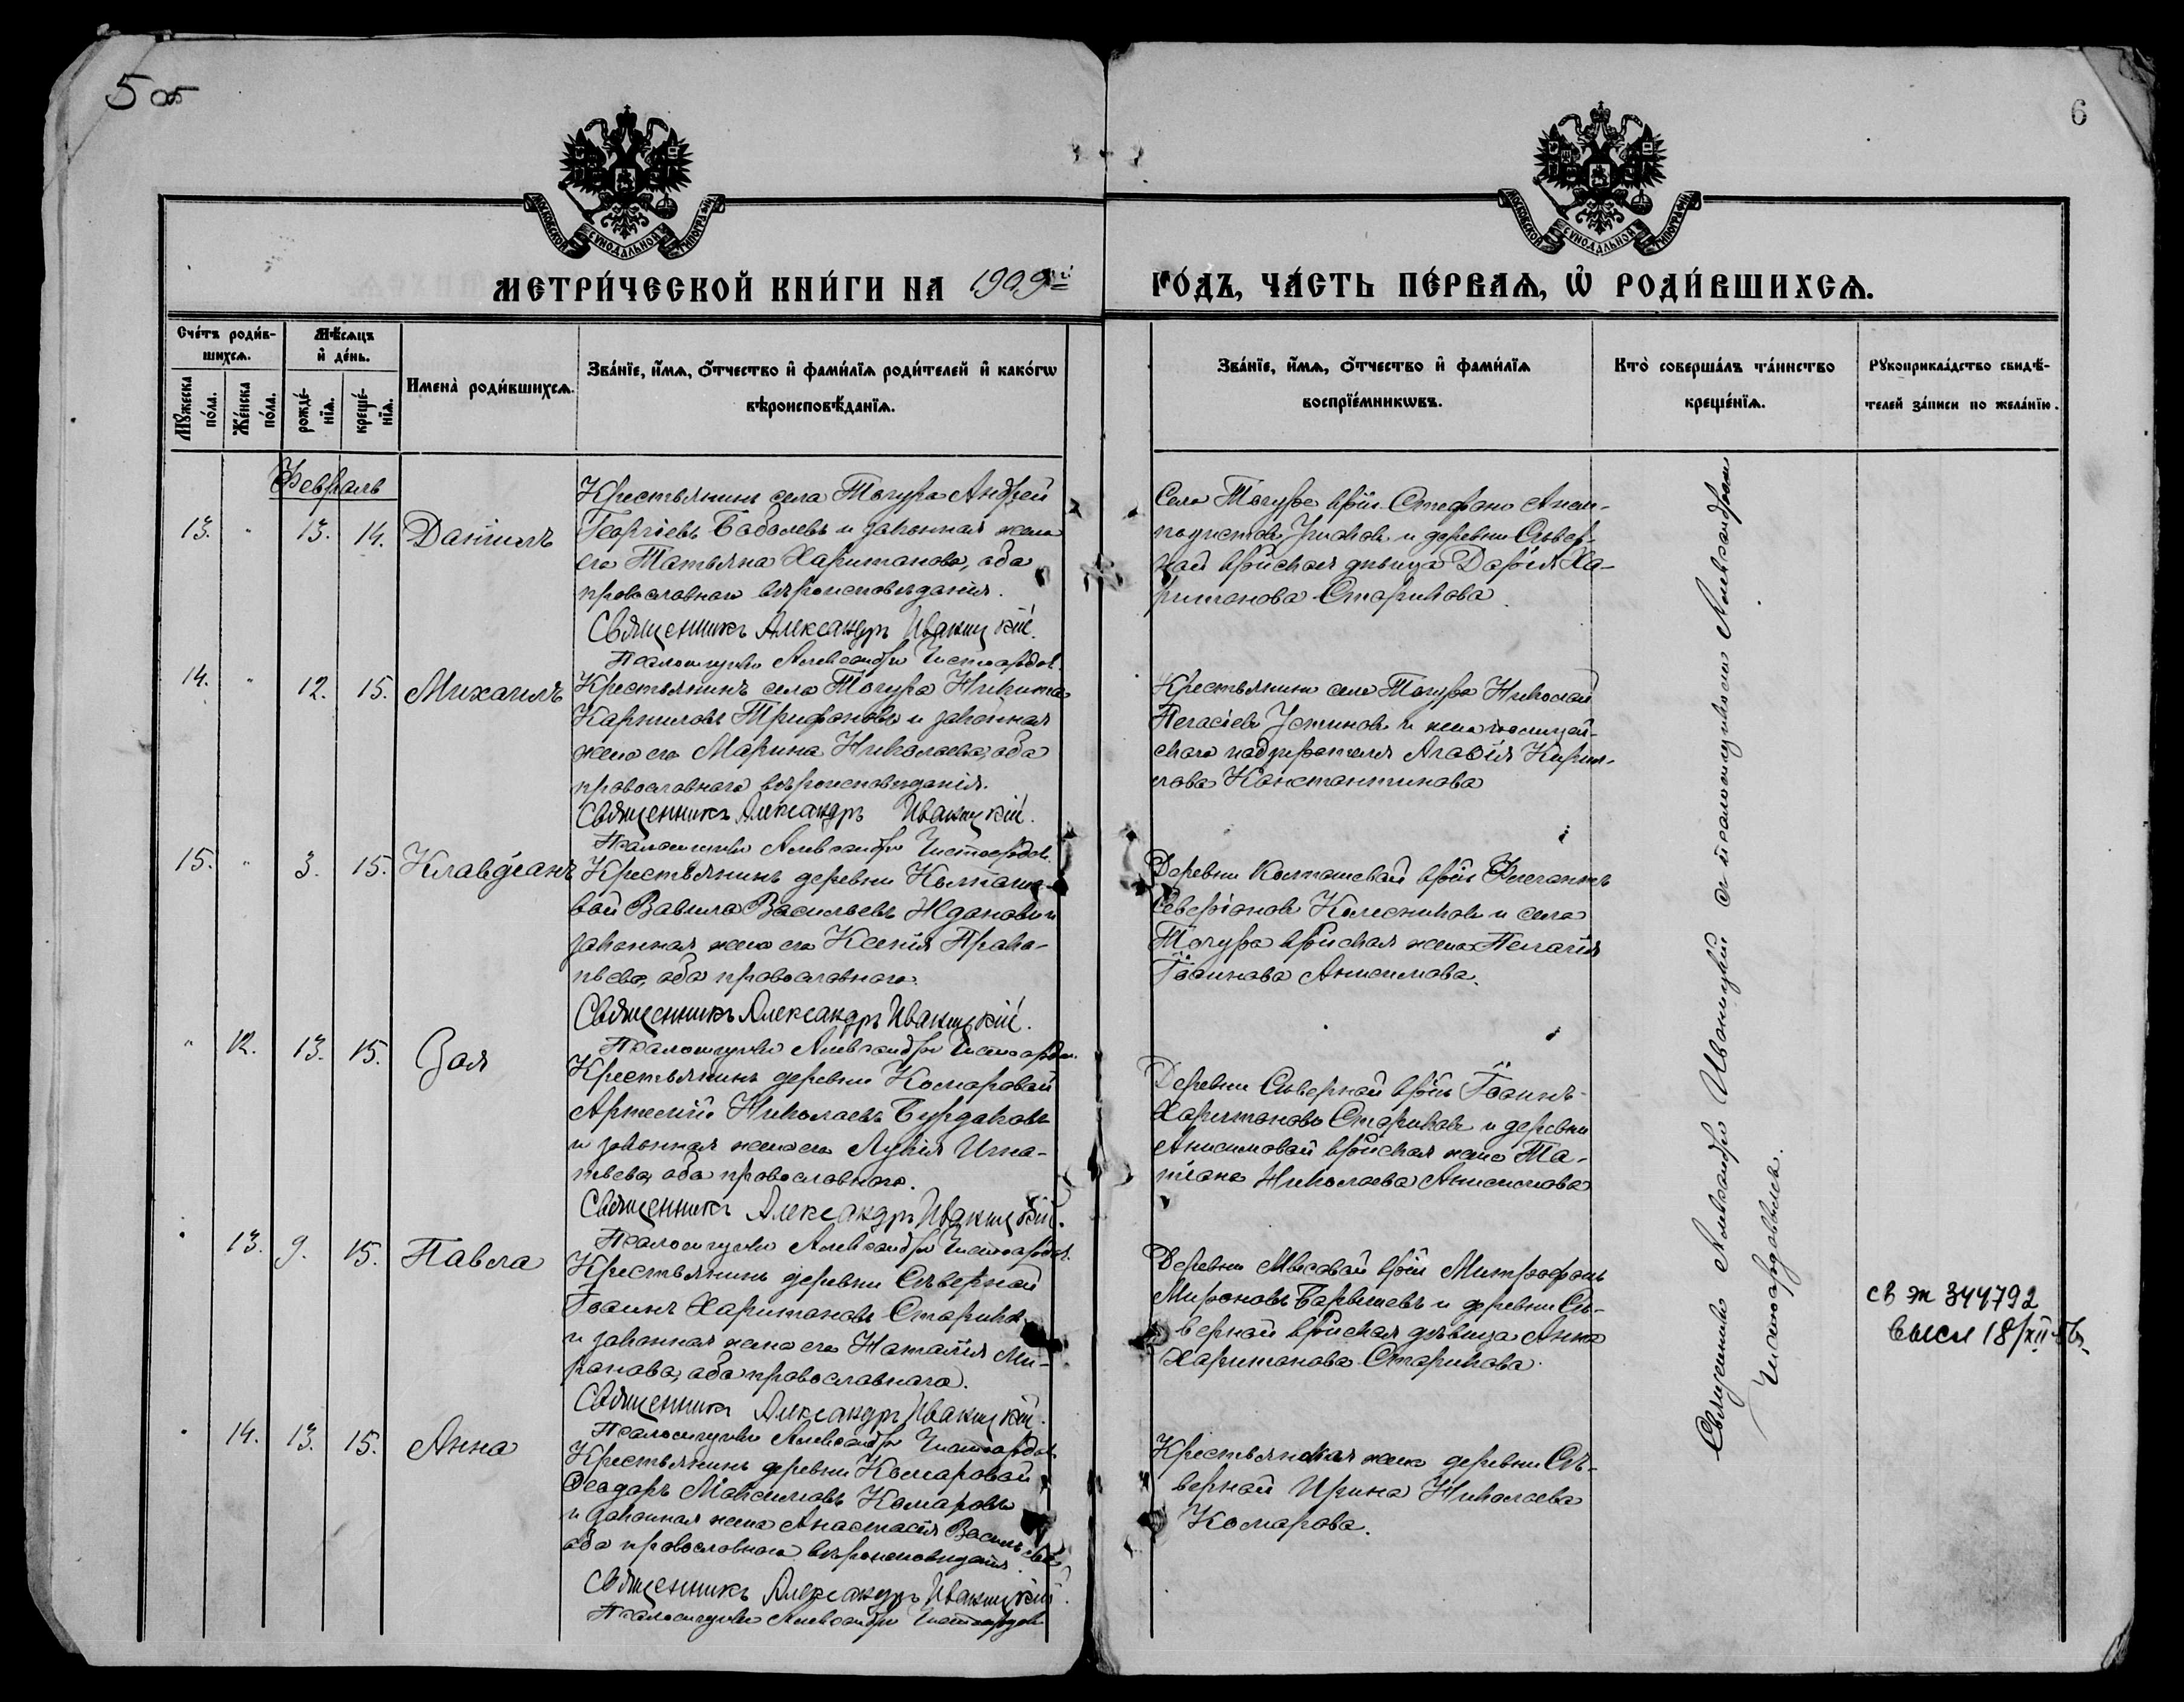 5 об
6
МОСКОВСКОЙ СѴНОДАЛЬНОЙ ТИПОГРАФІИ
МОСКОВСКОЙ СѴНОДАЛЬНОЙ ТИПОГРАФІИ
МЕТРИ́ЧЕСКОЙ КНИ́ГИ НА 1909й
ГО́ДЪ, ЧА́СТЬ ПЕ́РВАѦ, Ѽ РОДИ́ВШИХСѦ.
Сче́тъ роди́в-
шихсѧ.
Мꙋжеска по́ла.
Же́нска по́ла.
Мѣ́сѧцъ
и҆ де́нь.
рожде́-
нїѧ.
креще́-
нїѧ.
Имена̀ роди́вшихсѧ.
Зва́нїе, и҆́мѧ, ѻ҆́тчество и҆ фами́лїѧ роди́телей и҆ како́гѡ
вѣроисповѣ́данїѧ.
Зва́нїе, и҆́мѧ, ѻ҆́тчество и҆ фами́лїѧ
воспрїе́мникѡвъ.
Кто̀ соверша́лъ та́инство
креще́нїѧ.
Рꙋкоприкла́дство свидѣ́-
телей за́писи по жела́нїю.
Февраль
13. " 13. 14. Даніилъ
Крестьянинъ села Тогура Андрей
Георгіевъ Баболевъ и законная жена
его Татьяна Харитонова, оба
православнаго вѣроисповѣданія.
Священникъ Александръ Иваницкій.
Псаломщикъ Александръ Чистосердов
Села Тогура кр̃нъ Стефанъ
и деревни Сѣвер-
ной кр̃нская дѣвица Дарія Ха-
ритонова Старикова
14. " 12. 15. Михаилъ
Крестьянинъ села Тогура Никита
Карниловъ Трифоновъ и законная
жена его Марина Николаева, оба
православнаго вѣроисповѣданія.
Священникъ Александръ Иваницкій.
Псаломщикъ Александръ Чистосердов
Крестьянинъ села Тогура Николай
Пегасіевъ Устиновъ и жена полицей-
скаго надзирателя Агафія Кирил-
лова Константинова
15. " 3. 15. Клавдіанъ
Крестьянинъ деревни Колпаше-
вой Вавила Васильевъ Ждановъ и
законная жена его Ксенія Прако-
пьева, оба православнаго.
Священникъ Александръ Иваницкій.
Псаломщикъ Александръ Чистосердов
Деревни Колпашевой кр̃нъ
Северіановъ Колесниковъ и села
Тогура кр̃нская жена Пелагія
Іоаннова Анисимова.
" 12. 13. 15. Зоя
Крестьянинъ деревни Комаровой
Артемій Николаевъ Бурдаковъ
и законная жена его Лукія Игна-
тьева, оба православнаго.
Священникъ Александръ Иваницкій.
Псаломщикъ Александръ Чистосердов
Деревни Сѣверной кр̃нъ Іоаннъ
Харитоновъ Стариковъ и деревни
Анисимовой кр̃нская жена Та-
тіана Николаева Анисимова
" 13. 9. 15. Павла
Крестьянинъ деревни Сѣверной
Іоаннъ Харитоновъ Стариков
и законная жена его Наталія Ми-
ронова, оба православнаго.
Священникъ Александръ Иваницкій.
Псаломщикъ Александръ Чистосердов
Деревни Мысовой кр̃нъ Митрофанъ
Мироновъ Барышевъ и деревни Сѣ-
верной кр̃нская дѣвица Анна
Харитонова Старикова.
св эт 344792
высл 18/XII-56
" 14. 13. 15. Анна
Крестьянинъ деревни Комаровой
Ѳеодоръ Максимовъ Комаровъ
и законная жена Анастасія Васильева,
оба православнаго вѣроисповѣданія.
Священникъ Александръ Иваницкій.
Псаломщикъ Александръ Чистосердов
Крестьянская жена деревни Сѣ-
верной Ирина Николаева
Комарова.
Священникъ Александръ Иваницкій съ псаломщикомъ Александромъ
Чистосердовымъ.